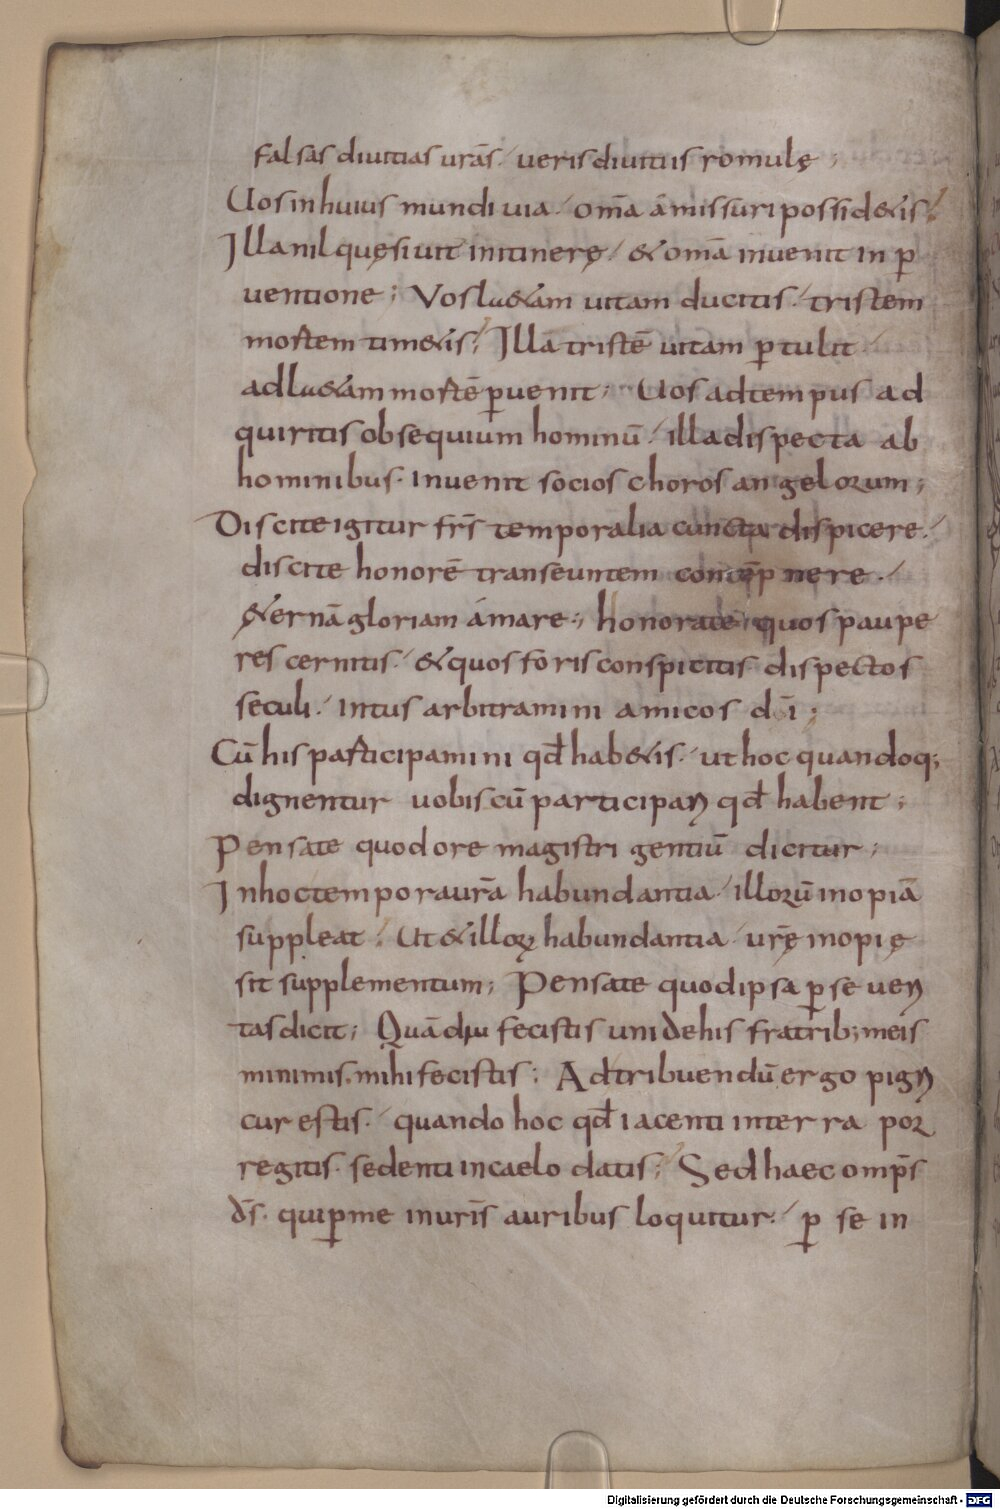 falsas diuitias urās. ueris diuitiis romulę ;
Uos in huius mundi uia. om̄a ámissuri possidetis;
Illa nil quęsiuit in itinerę. & om̄a inuenit in ꝑ
uentione; Vos lu&am uitam ducitis. tristem
mortem tim&is; Illa tristē uitam ꝑtulit
ad lu&am mortē ꝑuenit; Uos ad tempus ad
quiritis obsequium hominū. illa dispecta ab
hominibus. inuenit socios choros angelorum;
Discite igitur frs̄ temporalia cuncta dispicere.
discite honorē transeuntem contępnere.
&ernā gloriam ámare; honorate quos paupe
res cernitis. & quos foris conspicitis dispectos
seculi. intus arbitramini amicos dī;
Cū his participamini qd̄ hab&is. ut hoc quandoq;
dignentur uobiscū participari qd̄ habent;
Pensate quod ore magistri gentiū dicitur;
In hoc tempora ur̄a habundantia. illorū inopiā
suppleat; Ut & illoꝝ habundantia. ur̄ę inopię
sit supplementum; Pensate quod ipsa ꝑ se ueri
tas dicit; Quādiu fecistis uni de his fratrib; meis
minimis. mihi fecistis; Ad tribuendū ergo pigri
cur estis. quando hoc qd̄ iacenti in terra por
regitis. sedenti in caelo datis; Sed haec omp̄s
ds̄. qui ꝑ me in ur̄is auribus loquitur. ꝑ se in
Digitalisierung gefördert durch die Deutsche Forschungsgemeinschaft - DFG